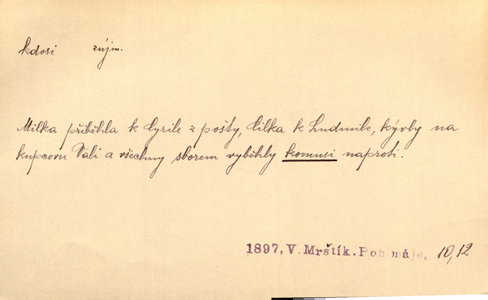 kdosi zájm.
Milka přiběhla k Cyrile z pošty, Cilka k Ludmile, kývly na
kupcovu Váli a všechny sborem vyběhly komusi naproti.
1897, V. Mrštík. Poh. máje, 10, 12